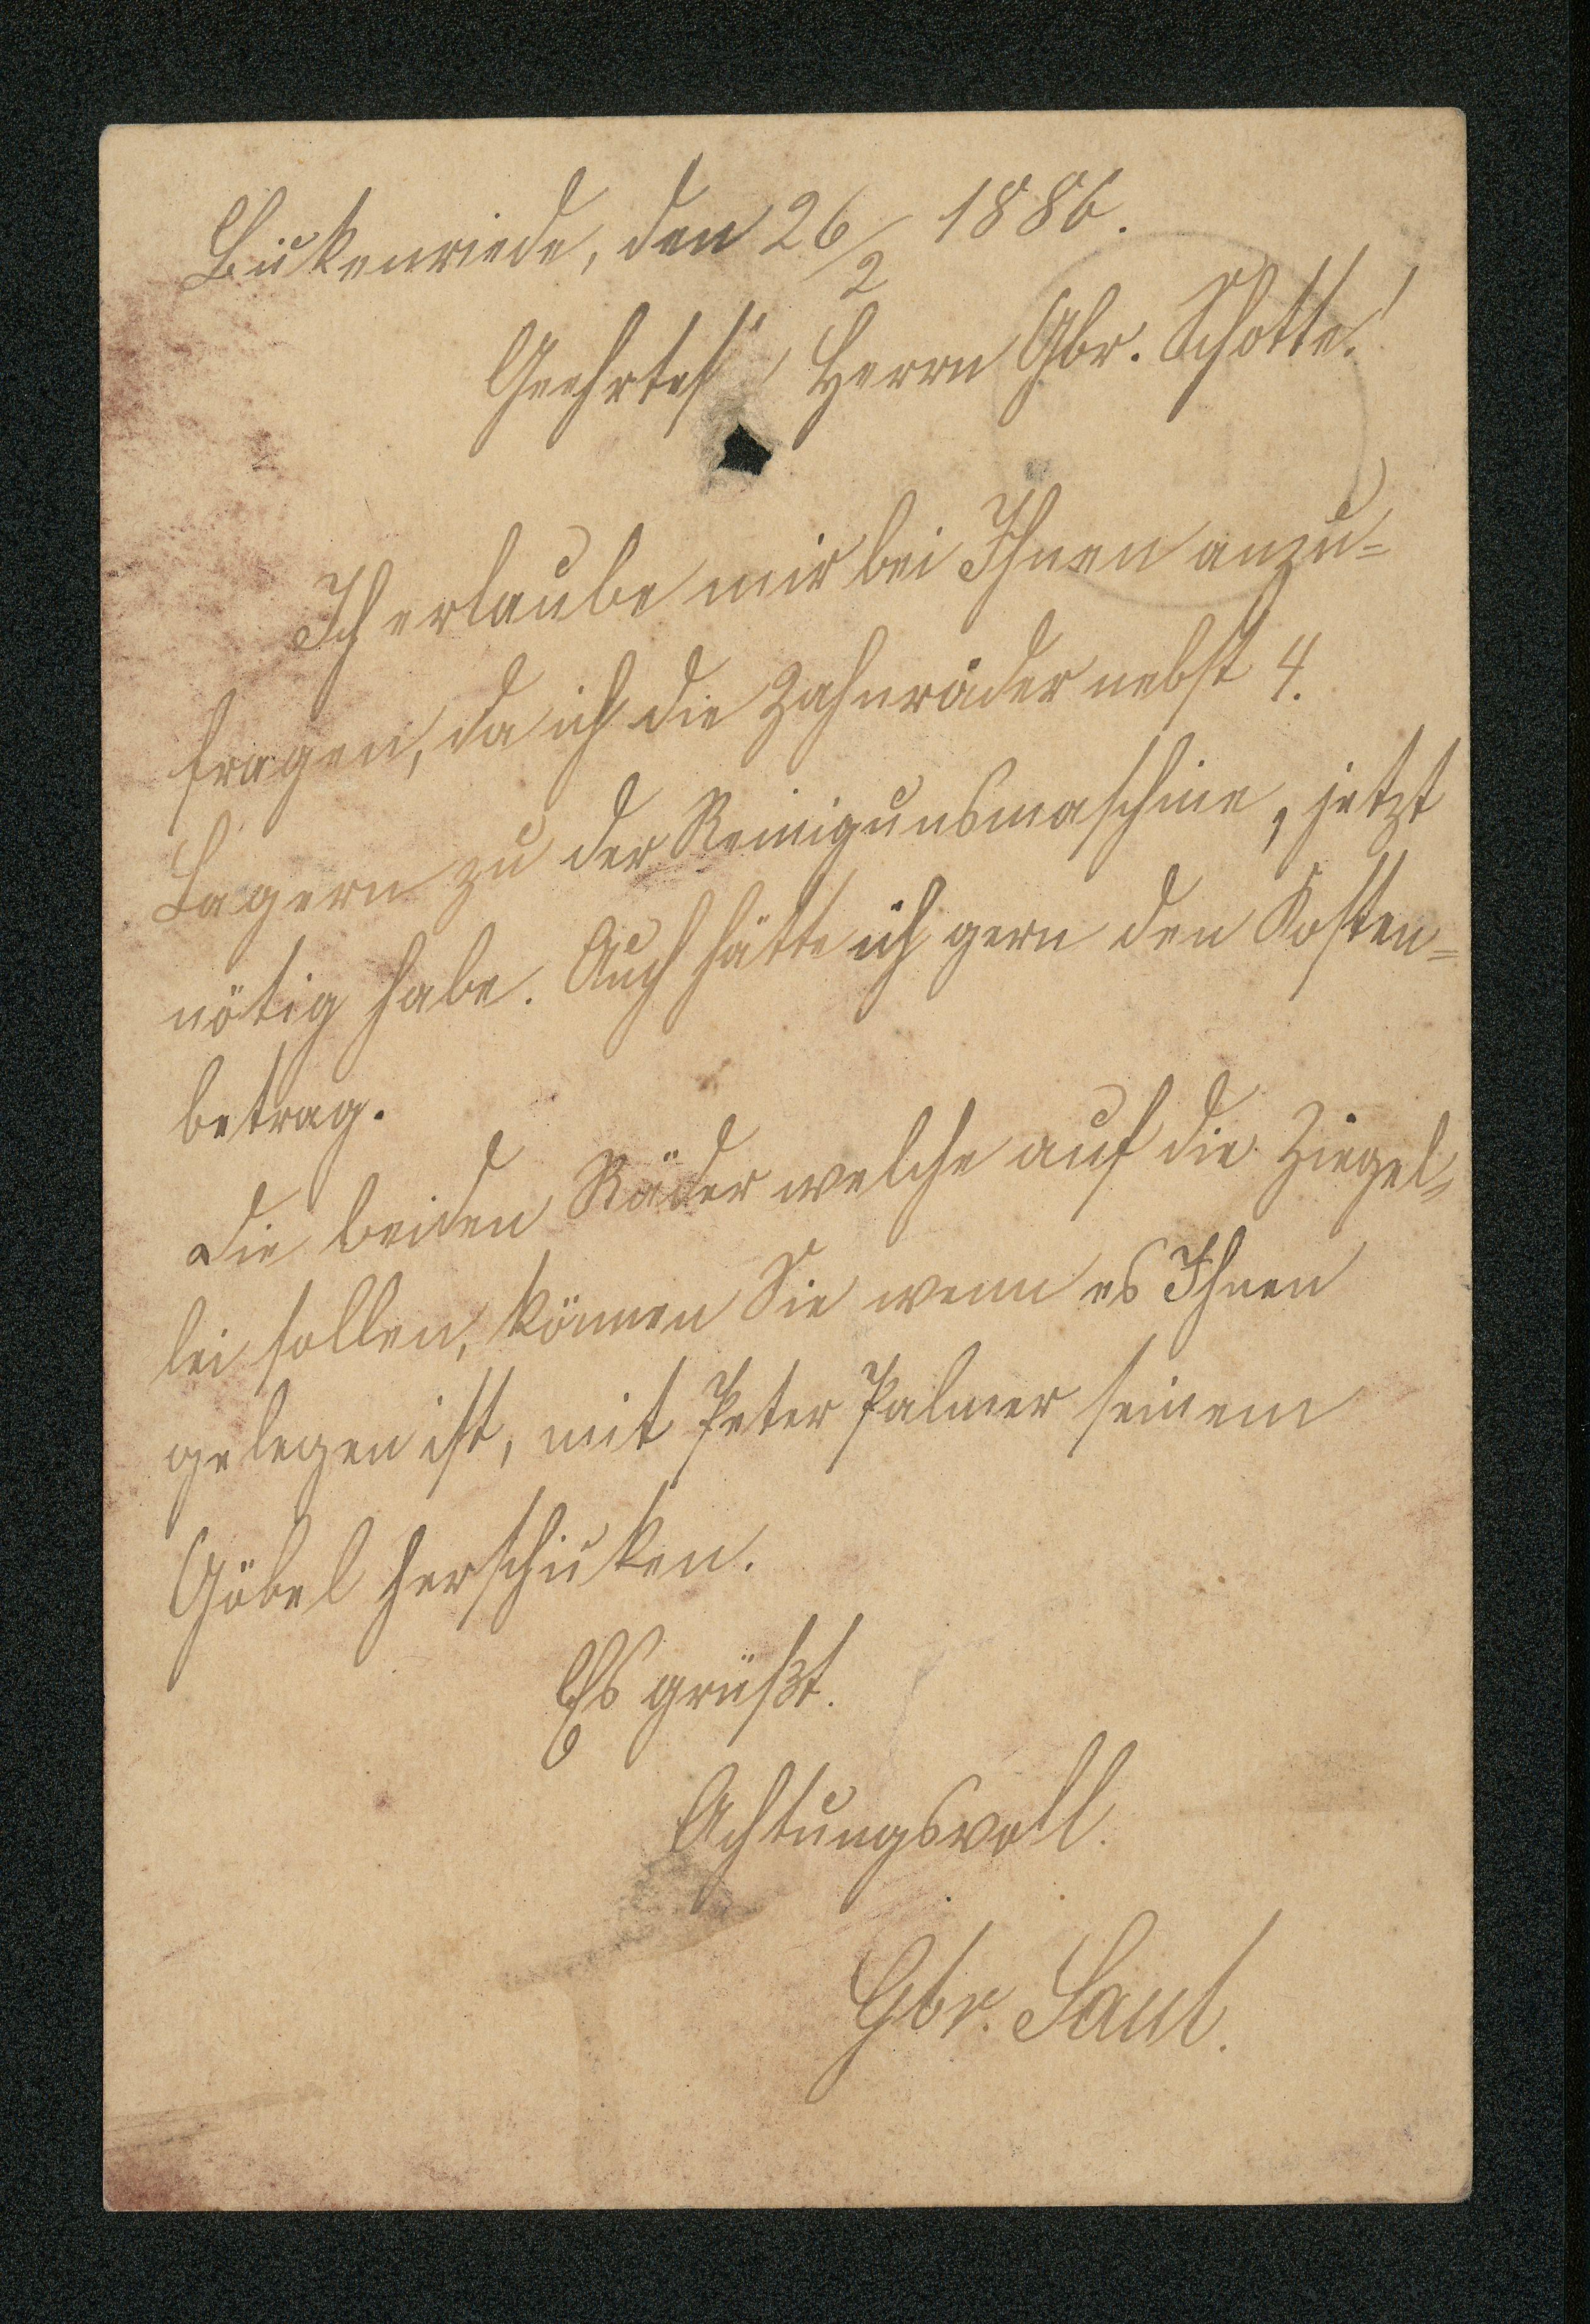 Bückenriede, den 26/2 1886.
Geehrtes Herrn Gbr. Schotte!
Ich erlaube mir bei Ihnen anzu=
fragen, da ich die Zahnräder nebst 4.
Lagern zu der Reinigunsmaschine, jetzt
nötig habe. Auch hätte ich gern den Kosten=
betrag.
Die beiden Räder welche auf die Ziegel=
lei sollen, können Sie wenn es Ihnen
gelegen ist, mit Peter Palmer seinem
Göbel herschicken.
Es grüßt.
Achtungsvoll.
Gbr. Saul.